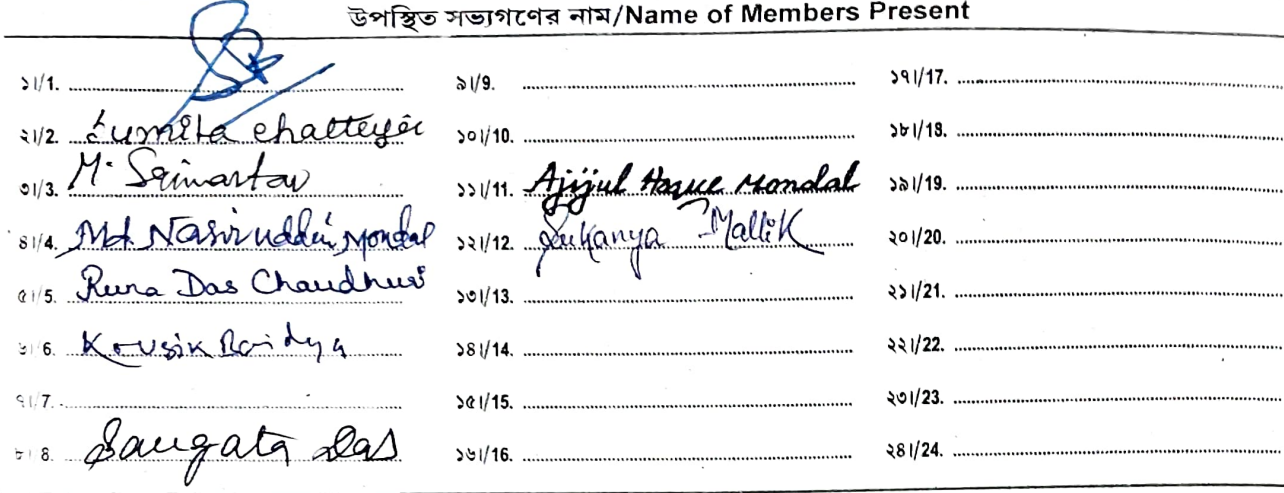 উপস্থিত সভ্যগণের নাম/Name of Members Present
১।/1.
২।/2. Sumita Chatterjee
৩।/3. M. Srimastav
৪।/4. Md. Nasiruddin Mondal
৫।/5. Runa Das Chaudhuri
৬।/6. Kousik Baidya
৭।/7.
৮।/8. Saugata Das
৯।/9.
১০।/10.
১১।/11. Ajijul Haque Mondal
১২।/12. Sukanya Mallik
১৩।/13.
১৪।/14.
১৫।/15.
১৬।/16.
১৭।/17.
১৮।/18.
১৯।/19.
২০।/20.
২১।/21.
২২।/22.
২৩।/23.
২৪।/24.